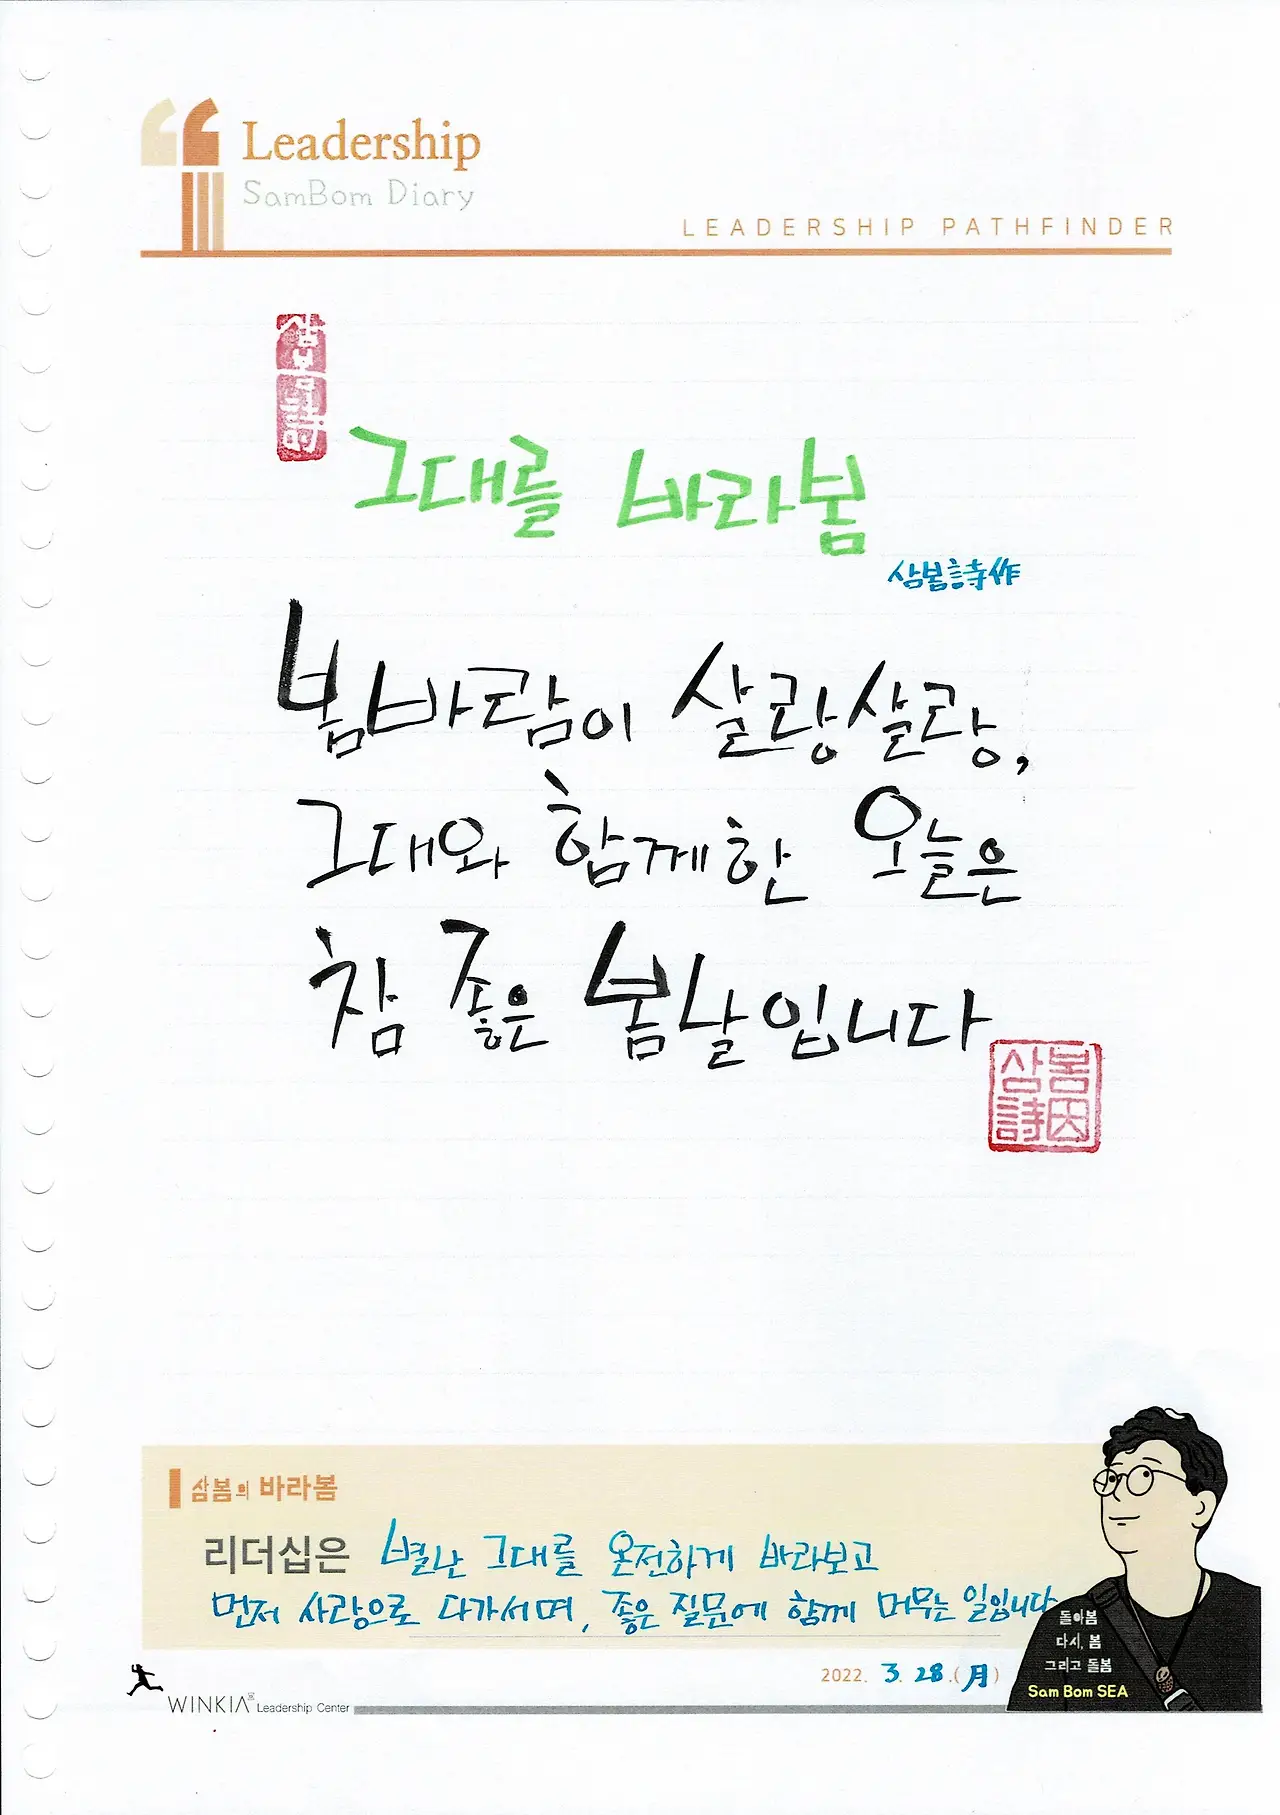 Leadership
SamBom Diary
LEADERSHIP PATHFINDER
삼봄詩
그대를 바라봄
삼봄詩作
봄바람이 살랑살랑,
그대와 함께한 오늘은
참 좋은 봄날입니다
삼봄
詩因
삼봄의 바라봄
리더십은 별난 그대를 온전하게 바라보고
먼저 사랑으로 다가서며, 좋은 질문에 함께 머무는 일입니다
돌아봄
다시, 봄
그리고 돌봄
Sam Bom SEA
2022. 3. 28.(月)
WINKIA Leadership Center